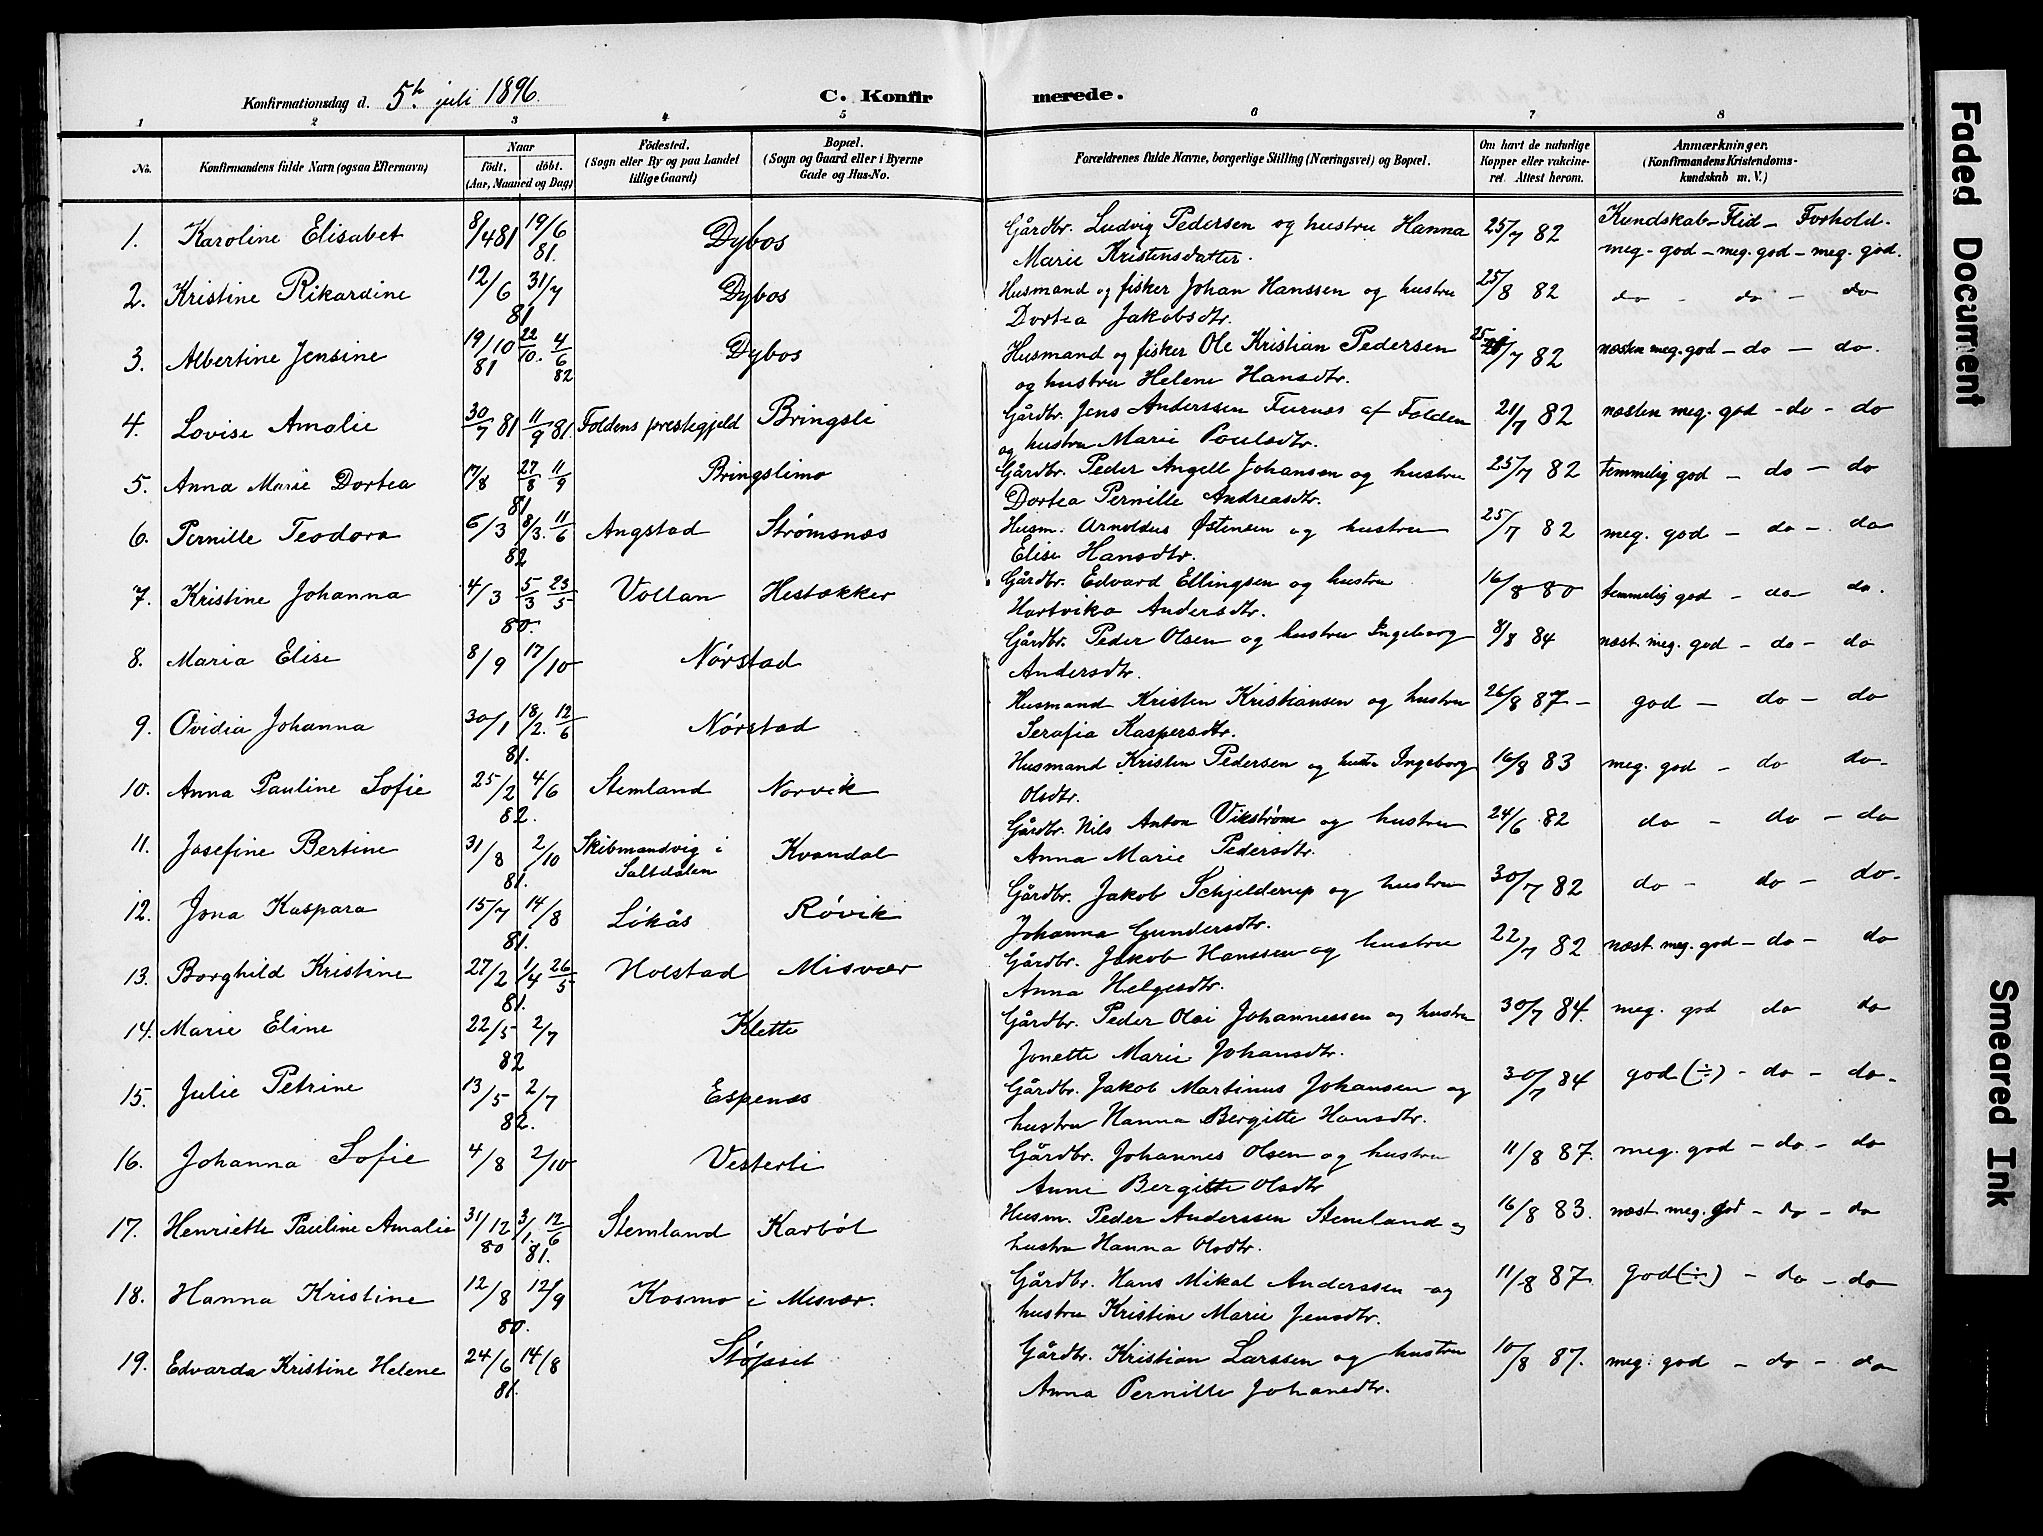 Konfirmationsdag d. 5te juli 1896.
C. Konfirmerede.
1 2 3 4 5 6 7 8
No.
Konfirmandens fulde Navn (ogsaa Efternavn)
Naar
födt, döbt.
(Aar, Maaned og Dag)
Födested.
(Sogn eller By og paa Landet
tillige Gaard)
Bopæl.
(Sogn og Gaard eller i Byerne
Gade og Hus-No.
Forældrenes fulde Navne, borgerlige Stilling (Næringsvei) og Bopæl.
Om havt de naturlige
Kopper eller vakcine-
ret. Attest herom.
Anmærkninger.
(Konfirmandens Kristendoms-
kundskab m. V.)
Kundskab - Flid - Forhold.
1. Karoline Elisabet 8/4 81 19/6 81. Dybos Gårdbr. Ludvig Pedersen og hustru Hanna 25/7 82 meg. god - meg. god - meg. god.
Marie Kristensdatter.
2. Kristine Rikardine 12/6 31/7 81 Dybos Husmand og fisker Johan Hanssen og hustru 25/8 82 do - do - do
Dortea Jakobsdtr.
3. Albertine Jensine 19/10 81 22/10. 4/6 82 Dybos Husmand og fisker Ole Kristian Pedersen 25/7 82 næsten meg. god - do - do.
og hustru Helene Hansdtr.
4. Lovise Amalie 30/7 81 11/9 81. Foldens prestegjeld Bringsli Gårdbr. Jens Anderssen Furnes af Folden 21/7 82 næsten meg. god - do - do
og hustru Marie Poulsdtr.
5. Anna Marie Dortea 17/8 27/8 11/9 81 Bringslimo Gårdbr. Peder Angell Johansen og hustru 25/7 82 temmelig god - do - do
Dortea Pernille Andreasdtr.
6. Pernille Teodora 6/3 8/3. 11/6 82 Angstad Strømsnes Husm. Arnoldus Østensen og hustru 25/7 82 meg. god - do - do
Elise Hansdtr.
7. Kristine Johanna 4/3 5/3 23/5 80. Vollan Hestækker Gårdbr. Edvard Ellingsen og hustru 16/8 80 temmelig god - do do.
Hartvika Andersdtr.
8. Maria Elise 8/9 17/10 Nørstad Gårdbr. Peder Olsen og hustru Ingeborg 8/8 84 næst. meg. god - do - do
Andersdtr.
9. Ovidia Johanna 30/1 18/2. 12/6 81. Nørstad Husmand Kristen Kristiansen og hustru 26/8 87 - god - do - do
Serafia Kaspersdtr.
10. Anna Pauline Sofie 25/2 4/6 82. Stemland Norvik Husmand Kristen Pedersen og hustru Ingeborg 16/8 83 meg. god - do do.
Olsdtr.
11. Josefine Bertine 31/8 2/10 81. Skibmandvig i Saltdalen Kvandal Gårdbr. Nils Anton Vikstrøm og hustru 24/6 82 do - do - do
Anna Marie Pedersdtr.
12. Jona Kaspara 15/7 14/8 81. Løkås Røvik Gårdbr. Jakob Schjelderup og hustru 30/7 82 do - do - do.
Johanna Gundersdtr.
13. Borghild Kristine 27/2 1/4 26/5 81. Holstad Misvær Gårdbr. Jakob Hanssen og hustru 22/7 82 næst. meg. god - do - do
Anna Helgesdtr.
14. Marie Eline 22/5 2/7 82 Klette Gårdbr. Peder Olai Johannessen og hustru 30/7 84. meg. god do do
Jonette Marie Johansdtr.
15. Julie Petrine 13/5 2/7 82. Espenes Gårdbr. Jakob Martinus Johansen og 30/7 84 god (÷) - do - do.
hustru Hanna Bergitte Hansdtr.
16. Johanna Sofie 4/8 2/10 Vesterli Gårdbr. Johannes Olsen og hustru 11/8 87. meg. god - do - do
Anne Bergitte Olsdtr
17. Henriette Pauline Amalie 31/12 80 3/1. 12/6 81. Stemland Karbøl Husm. Peder Anderssen Stemland og 16/8 83. næst meg. god - do - do
hustru Hanna Olsdtr.
18. Hanna Kristine 12/8 12/9 80. Kosmo i Misvær. Gårdbr. Hans Mikal Anderssen og 11/8 87. god (÷) - do - do
hustru Kristine Marie Jensdtr.
19. Edvarda Kristine Helene 24/6 14/8 81. Støpset Gårdbr. Kristian Larssen og hustru 10/8 87. meg. god - do - do
Anna Pernille Johansdtr.
Faded Document
Smeared Ink